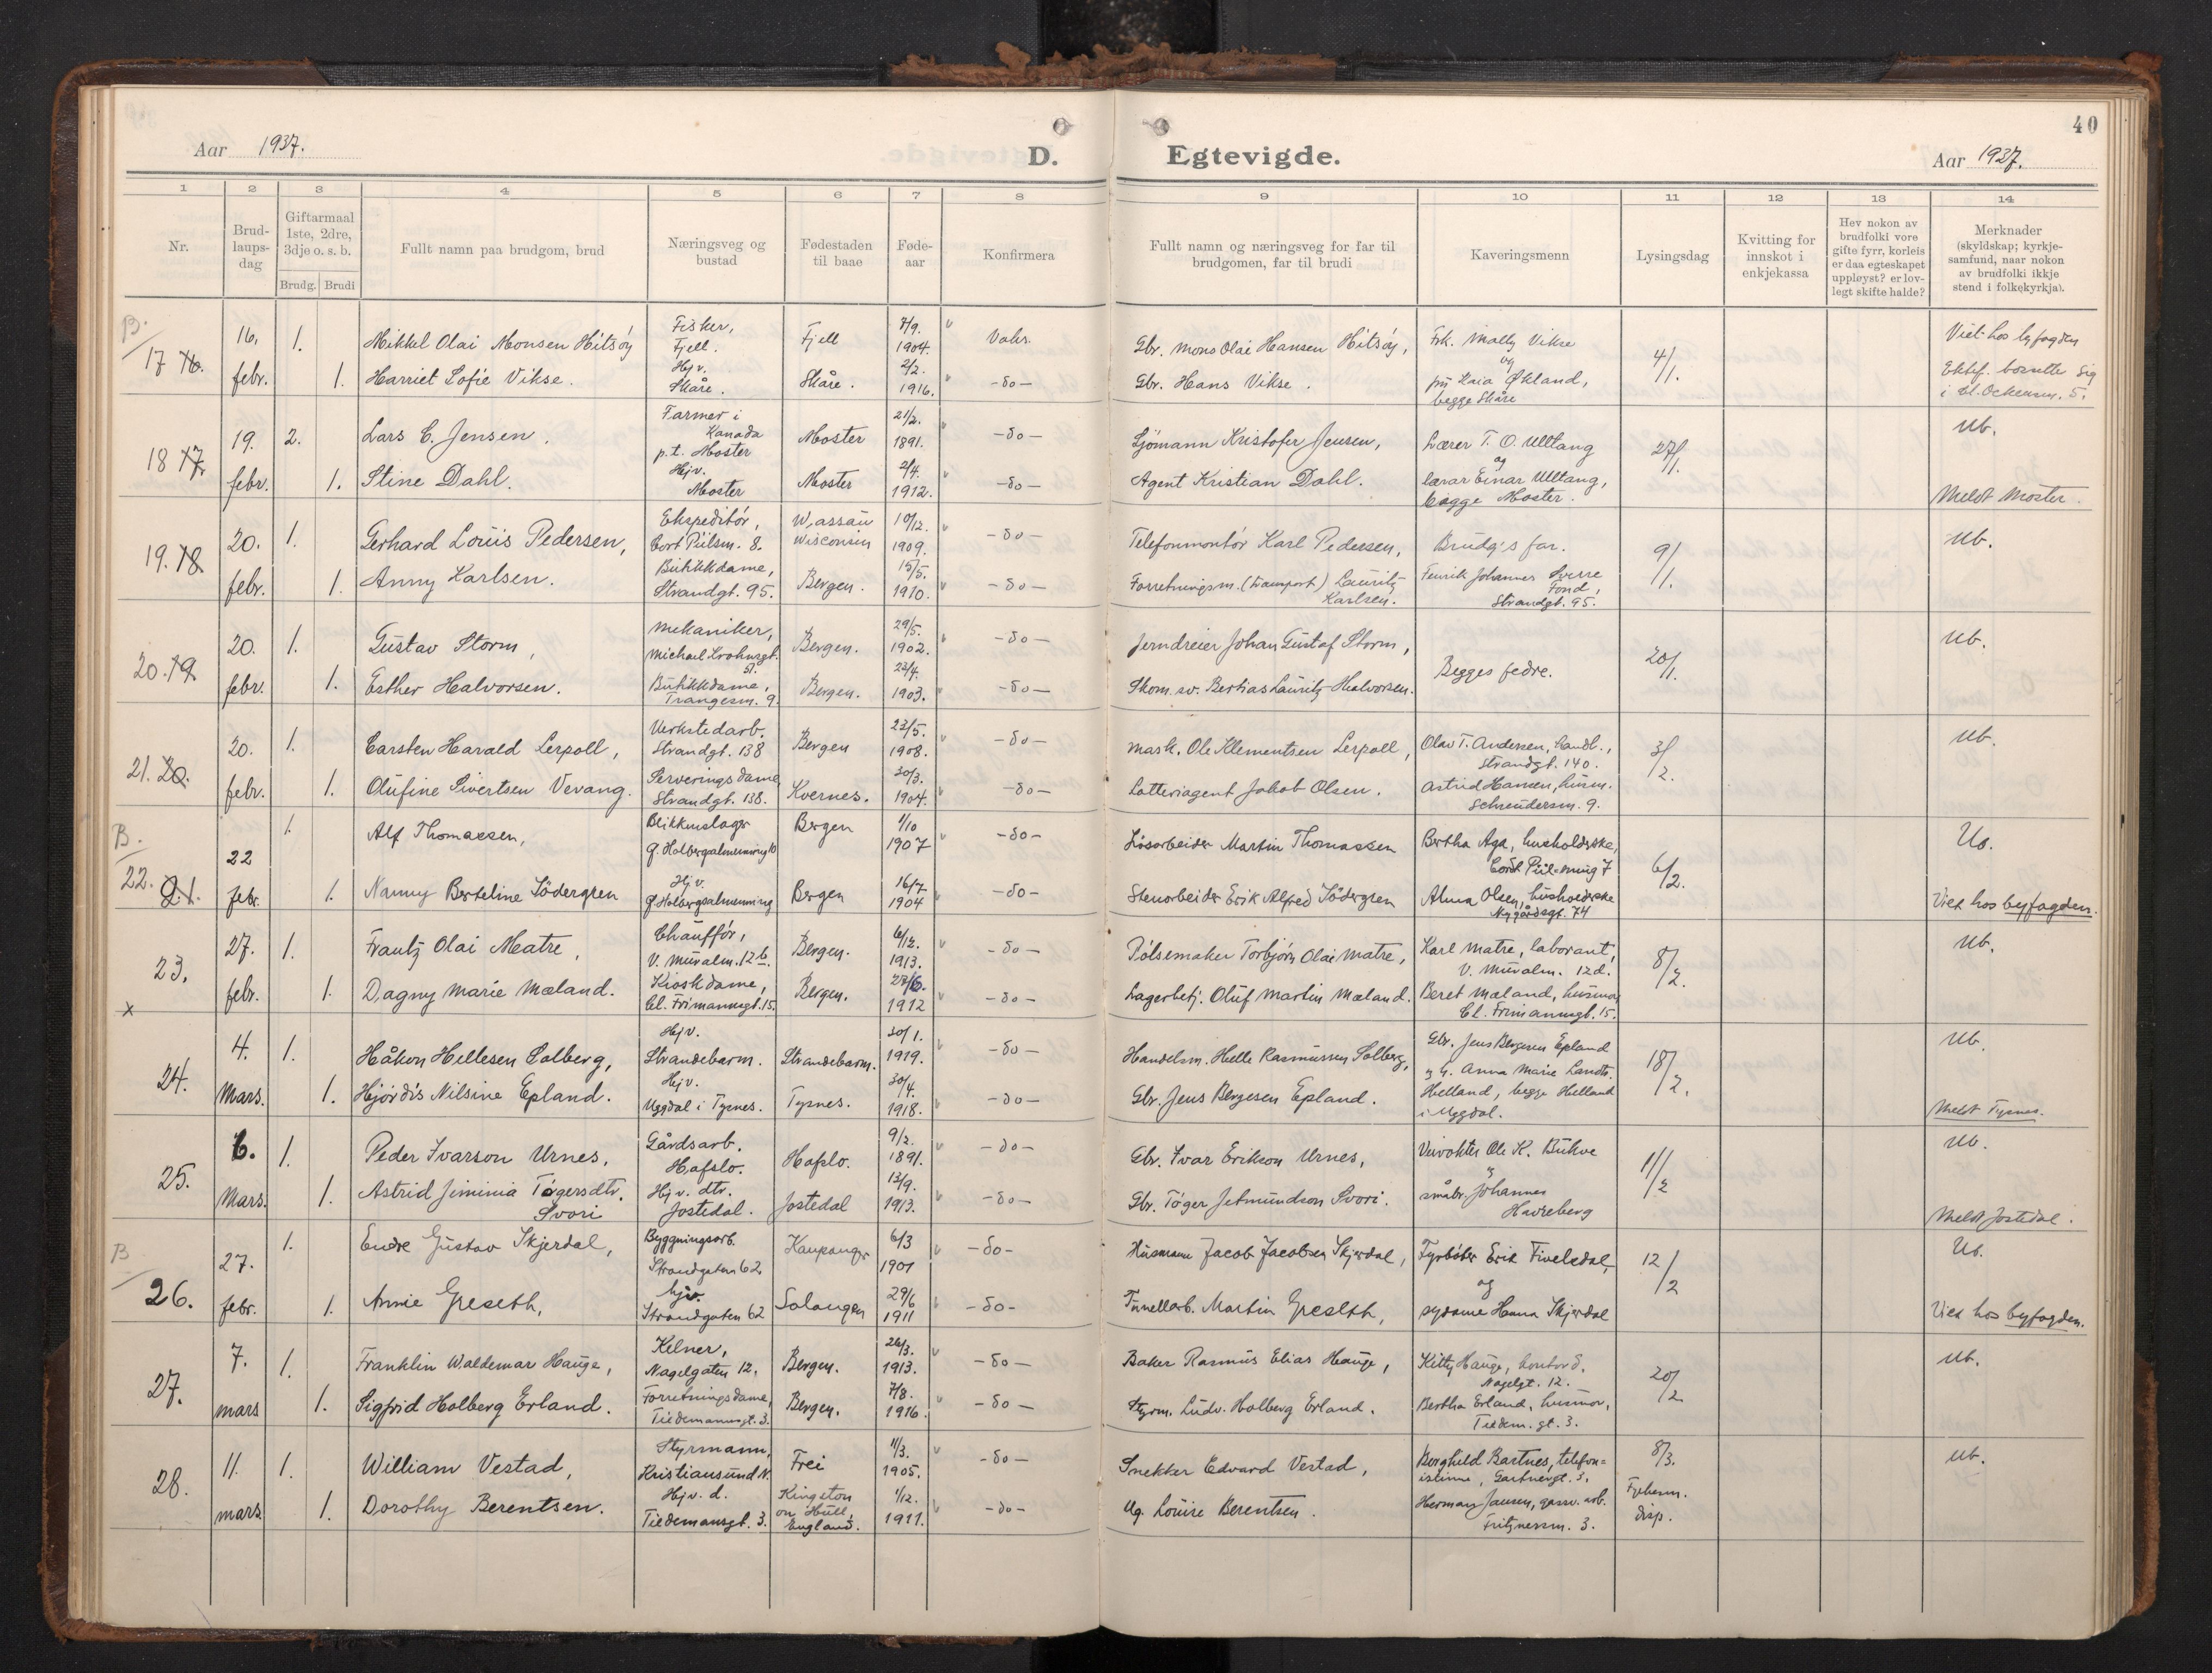 40
Aar 1937.
D. Egtevigde.
Aar 1937.
1 2 3 4 5 6 7 8 9 10 11 12 13 14
Nr.
Brud-
laups-
dag
Giftarmaal
1ste, 2dre,
3dje o. s. b.
Brudg. Brudi
Fullt namn paa brudgom, brud
Næringsveg og
bustad
Fødestaden
til baae
Føde-
aar
Konfirmera
Fullt namn og næringsveg for far til
brudgomen, far til brudi
Kaveringsmenn
Lysingsdag
Kvitting for
innskot i
enkjekassa
Hev nokon av
brudfolki vore
gifte fyrr, korleis
er daa egteskapet
uppløyst? er lov-
legt skifte halde?
Merknader
(skyldskap; kyrkje-
samfund, naar nokon
av brudfolki ikkje
stend i folkekyrkja).
B.
17 16.
16. febr.
1. Mikkel Olai Monsen Hitsöy
Fisker, Fjell.
Fjell
7/9. 1904.
Vaks.
Gbr. Mons Olai Hansen Hitsöy,
Frk. Molly Vikse
og
4/1.
Viet hos byfogden
1. Harriet Sofie Vikse.
Hjv. Skåre.
Skåre.
2/2. 1916.
-do-
Gbr. Hans Vikse.
fru Kaia Økland,
begge Skåre
Ektef. bosette sig
18 17.
19. febr.
2. Lars C. Jensen.
Farmer i
Kanada
p.t. Moster
Moster
21/2. 1891.
-do-
Sjömann Kristofer Jensen,
Lærer T. O. Ulltang
og
27/1.
Ub.
1. Stine Dahl.
Hjv.
Moster
Moster
2/4. 1912.
-do-
Agent Kristian Dahl.
lærar Einar Ulltang,
begge Moster.
Meldt Moster.
19. 18.
20. febr.
1. Gerhard Louis Pedersen,
Ekspeditör,
Cort Piilsm. 8.
Wassau
Wisconsin
10/12. 1909.
-do-
Telefonmontör Karl Pedersen,
Brudg's far.
9/1.
Ub.
1. Anny Karlsen.
Butikkdame,
Strandgt. 95.
Bergen.
15/5. 1910.
-do-
Forretningsm. (transport) Lauritz
Karlsen.
Fenrik Johannes Sverre
Fond,
Strandgt. 95.
20. 19.
20. febr.
1. Gustav Storm,
Mekaniker,
Michael Krohnsgt.
51.
Bergen.
29/5. 1902.
-do-
Jerndreier Johan Gustaf Storm,
Begges fedre.
20/1.
Ub.
1. Esther Halvorsen.
Butikkdame,
Trangesm. 9.
Bergen.
23/4. 1903.
-do-
Skom.sv. Bertias Lauritz Halvorsen.
21. 20.
20. febr.
1. Carsten Harald Lerpoll,
Verkstedarb.
Strandgt. 138
Bergen
23/5. 1908.
-do-
Mask. Ole Klementsen Lerpoll,
Olav T. Andersen, handl.,
Strandgt. 140.
3/2.
Ub.
1. Olufine Sivertsen Vevang.
Serveringsdame
Strandgt. 138.
Kvernes.
30/3. 1904.
-do-
Lotteriagent Jakob Olsen.
Astrid Hansen, husm.
Scheudersm. 9.
B.
22. 21.
22 febr.
1. Alf Thomassen,
Blikkenslager
Bergen
1/10 1907
-do-
Lösarbeider Martin Thomassen
Bertha Aga, husholderske,
Cort Piil-smug 7
6/2.
Ub.
1. Nanny Berteline Södergren
Hjv.
Bergen
16/7 1904
-do-
Stenarbeider Erik Alfred Södergren
Alma Olsen, husholderske
Nygårdsgt. 74
Viet hos byfogden.
23.
x
27. febr.
1. Frantz Olai Matre,
Chauffør,
V. Muralm. 12 b.
Bergen.
6/12. 1913.
-do-
Pölsemaker Torbjörn Olai Matre,
Karl Matre, laborant,
V. Muralm. 12d.
8/2.
Ub.
1. Dagny Marie Mæland.
Kioskdame,
Cl. Frimannsgt. 15.
Bergen.
27/6. 1912
-do-
Lagerbetj. Oluf Martin Mæland.
Beret Mæland, husmor
Cl. Frimannsgt. 15.
24.
4. Mars.
1. Håkon Hellesen Solberg,
Hjv.
Strandebarm.
Strandebarm.
30/1. 1919.
-do-
Handelsm. Helle Rasmussen Solberg,
Gbr. Jens Bergesen Epland
18/2.
Ub.
1. Hjördis Nilsine Epland.
Hjv.
Uggdal i Tysnes.
Tysnes.
30/4. 1918.
-do-
Gbr. Jens Bergesen Epland.
og h. Anna Marie Landts.
Helland, begge Helland
i Uggdal.
Meldt Tysnes.
25.
6. Mars.
1. Peder Ivarson Urnes,
Gårdsarb.
Hafslo.
Hafslo.
9/2. 1891.
-do-
Gbr. Ivar Erikson Urnes,
Veivokter Ole K. Buhve
og
11/2
Ub.
1. Astrid Jiminia Tøgersdtr.
Svori
Hjv. dtr.
Jostedal.
Jostedal
13/9. 1913.
-do-
Gbr. Töger Jetmundson Svori.
småbr. Johannes
Havreberg
Meldt Jostedal.
B
26.
27. febr.
1. Endre Gustav Skjerdal,
Byggningsarb.
Strandgaten 62,
Kaupanger
6/3 1901
-do-
Husmann Jacob Jacobsen Skjerdal,
Fyrböter Erik Fivelsdal,
og
12/2
Ub.
1. Annie Greseth,
hjv.
Strandgaten 62
Salangen
29/6 1911
-do-
Tunellarb. Martin Greseth,
sydame Hanna Skjerdal
Viet hos byfogden.
27.
7. mars
1. Franklin Waldemar Hauge,
Kelner,
Nagelgaten 12.
Bergen.
26/3. 1913.
-do-
Baker Rasmus Elias Hauge,
Kitty Hauge, kontord.
Nagelgt. 12.
20/2.
Ub.
1. Sigfrid Holberg Erland.
Forretningsdame,
Tiedemannsgt. 3.
Bergen.
7/8. 1916.
-do-
Styrm. Ludv. Holberg Erland.
Bertha Erland, husmor,
Tiedem. gt. 3.
28.
11. mars
1. William Vestad,
Styrmann,
Kristiansund N.
Frei
11/3. 1905.
-do-
Snekker Edvard Vestad,
Borghild Bartnes, telefon=
istinne, Gartnergt. 3.
8/3.
Ub.
1. Dorothy Berentsen.
Hjv. d.
Tiedemansgt. 3.
Kingston
on Hull,
England.
1/12. 1911.
-do-
Ug. Louise Berentsen.
Herman Jansen, gassv. arb.
Fritznersm. 3.
Fylkesm.
disp.